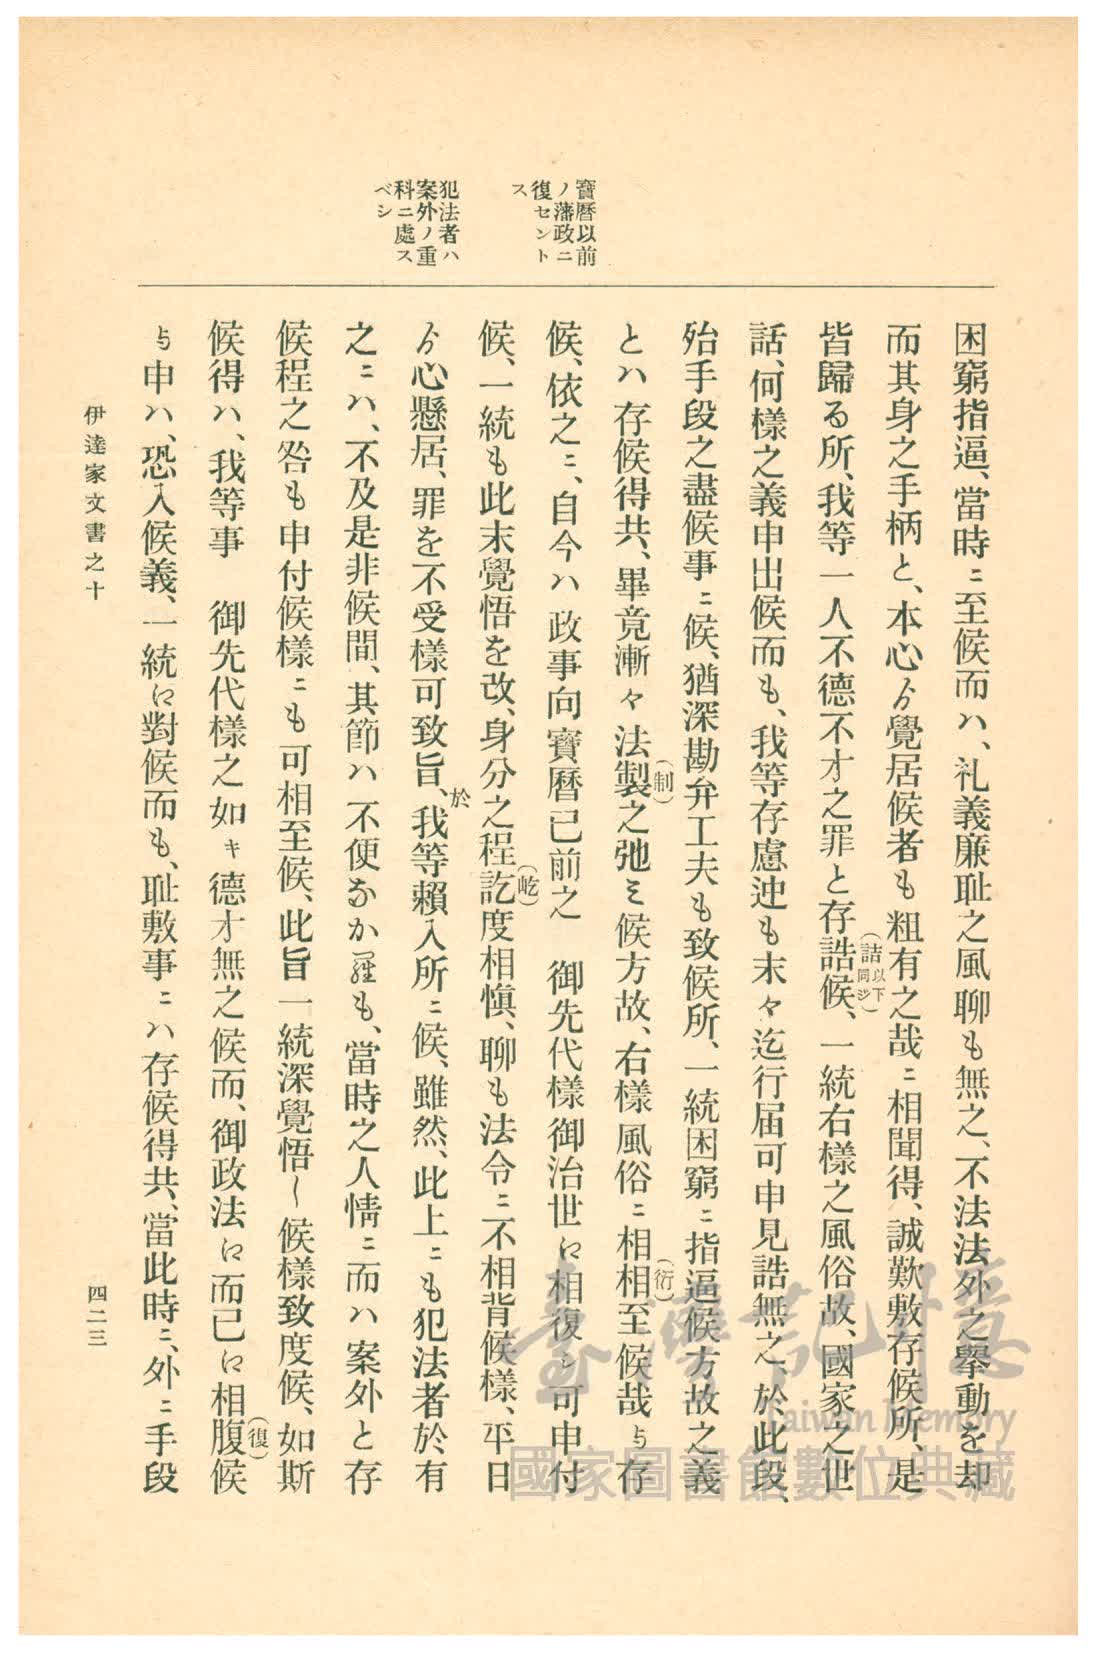 寶曆以前
ノ藩政ニ
復セント
ス
犯法者ハ
案外ノ重
科ニ處ス
ベシ
困窮指逼、當時ニ至候而ハ、礼義廉耻之風聊も無之、不法法外之擧動を却
而其身之手柄と、本心ゟ覺居候者も粗有之哉ニ相聞得、誠歎敷存候所、是
皆歸る所、我等一人不德不才之罪と存誥候、一統右樣之風俗故、國家之世
(詰以下同ジ)
話、何樣之義申出候而も、我等存慮迚も末々迄行届可申見誥無之、於此段、
殆手段之盡候事ニ候、猶深勘弁工夫も致候所、一統困窮ニ指逼候方故之義
とハ存候得共、畢竟漸々法製之弛ミ候方故、右樣風俗ニ相相至候哉与存
(制)
(衍)
候、依之ニ、自今ハ政事向寶曆已前之 御先代樣御治世に相復シ可申付
候、一統も此末覺悟を改、身分之程訖度相愼、聊も法令ニ不相背候樣、平日
(屹)
ゟ心懸居、罪を不受樣可致旨、我等賴入所ニ候、雖然、此上ニも犯法者於有
於
之ニハ、不及是非候間、其節ハ不便なか羅も、當時之人情ニ而ハ案外と存
候程之咎も申付候樣ニも可相至候、此旨一統深覺悟し候樣致度候、如斯
候得ハ、我等事 御先代樣之如キ德才無之候而、御政法に而已に相腹候
(復)
与申ハ、恐入候義、一統に對候而も、耻敷事ニハ存候得共、當此時ニ、外ニ手段
伊達家文書之十
四二三
臺灣記憶
Taiwan Memory
國家圖書館數位典藏